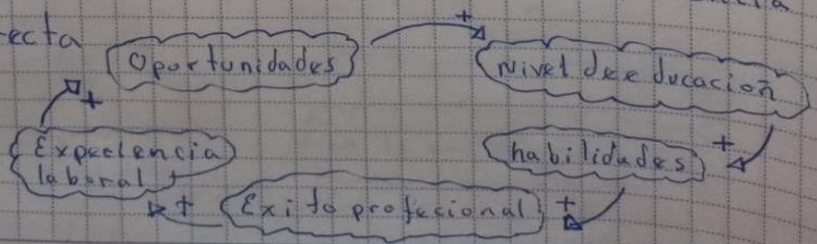 ecta
Oportunidades
+
Nivel de educación
+
habilidades
+
Exito profesional
+
Experiencia
laboral
+